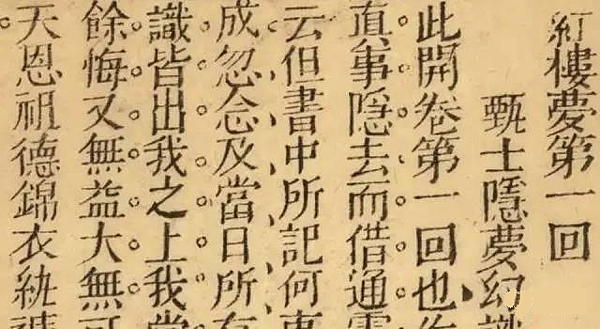 紅樓夢第一回
甄士隱夢幻識
此開卷第一回也
真事隱去而借通靈
云但書中所記何事
成忽念及當日所有
識皆出我之上我堂
餘悔又無益大無可
天恩祖德錦衣紈